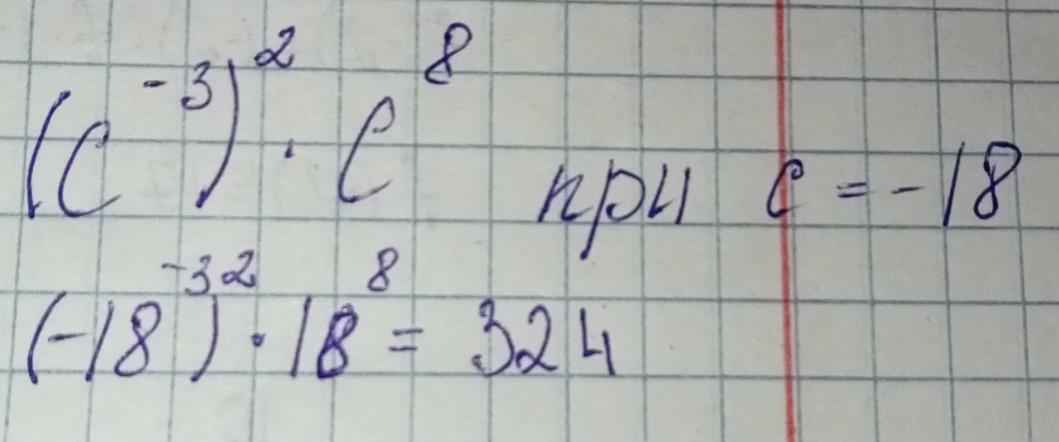 (c⁻³)² · c⁸ при c = -18
(-18⁻³)² · 18⁸ = 324